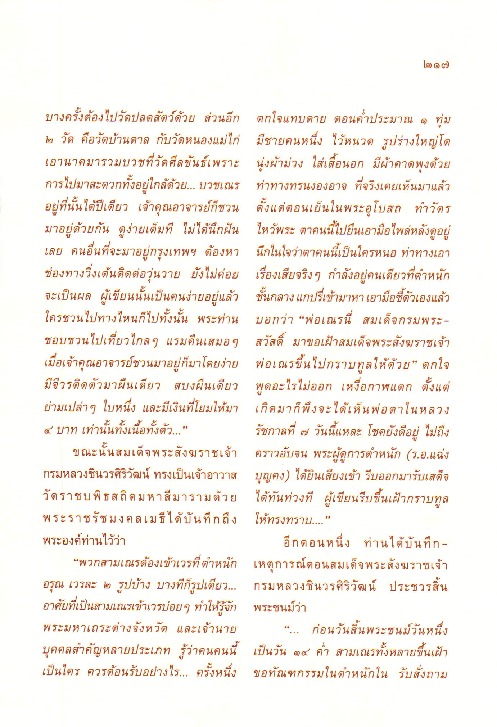 ๒๑๗
บางครั้งต้องไปวัดปลดสัตว์ด้วย ส่วนอีก
๒ วัด คือวัดบ้านตาล กับวัดหนองแม่ไก่
เอานาคมารวมบวชที่วัดศีลขันธ์เพราะ
การไปมาสะดวกทั้งอยู่ใกล้ด้วย... บวชเณร
อยู่ที่นั้นได้ปีเดียว เจ้าคุณอาจารย์ก็ชวน
มาอยู่ด้วยกัน ดูง่ายเต็มที ไม่ได้นึกฝัน
เลย คนอื่นที่จะมาอยู่กรุงเทพฯ ต้องหา
ช่องทางวิ่งเต้นติดต่อวุ่นวาย ยังไม่ค่อย
จะเป็นผล ผู้เขียนนั้นเป็นคนง่ายอยู่แล้ว
ใครชวนไปทางไหนก็ไปทั้งนั้น พระท่าน
ชอบชวนไปเที่ยวไกลๆ แรมคืนเสมอๆ
เมื่อเจ้าคุณอาจารย์ชวนมาอยู่ก็มาโดยง่าย
มีจีวรติดตัวมาผืนเดียว สบงผืนเดียว
ย่ามเปล่าๆ ใบหนึ่ง และมีเงินที่โยมให้มา
๔ บาท เท่านั้นทั้งเนื้อทั้งตัว..."
ขณะนั้นสมเด็จพระสังฆราชเจ้า
กรมหลวงชินวรศิริวัฒน์ ทรงเป็นเจ้าอาวาส
วัดราชบพิธสถิตมหาสีมารามด้วย
พระราชรัชมงคลเมธีได้บันทึกถึง
พระองค์ท่านไว้ว่า
"พวกสามเณรต้องเข้าเวรที่ตำหนัก
อรุณ เวรละ ๒ รูปบ้าง บางทีก็รูปเดียว...
อาศัยที่เป็นสามเณรเข้าเวรบ่อยๆ ทำให้รู้จัก
พระมหาเถระต่างจังหวัด และเจ้านาย
บุคคลสำคัญหลายประเภท รู้ว่าคนคนนี้
เป็นใคร ควรต้อนรับอย่างไร... ครั้งหนึ่ง
ตกใจแทบตาย ตอนค่ำประมาณ ๑ ทุ่ม
มีชายคนหนึ่ง ไว้หนวด รูปร่างใหญ่โต
นุ่งผ้าม่วง ใส่เสื้อนอก มีผ้าคาดพุงด้วย
ท่าทางทรนงองอาจ ที่จริงเคยเห็นมาแล้ว
ตั้งแต่ตอนเย็นในพระอุโบสถ ทำวัตร
ไหว้พระ ตาคนนี้ไปยืนเอามือไพล่หลังดูอยู่
นึกในใจว่าตาคนนี้เป็นใครหนอ ท่าทางเอา
เรื่องเสียจริงๆ กำลังอยู่คนเดียวที่ตำหนัก
ชั้นกลาง แกปรี่เข้ามาหา เอามือชี้ตัวเองแล้ว
บอกว่า "พ่อเณรนี่ สมเด็จกรมพระ-
สวัสดิ์ มาขอเฝ้าสมเด็จพระสังฆราชเจ้า
พ่อเณรขึ้นไปกราบทูลให้ด้วย" ตกใจ
พูดอะไรไม่ออก เหงื่อกาฬแตก ตั้งแต่
เกิดมาก็พึ่งจะได้เห็นพ่อตาในหลวง
รัชกาลที่ ๗ วันนี้แหละ โชคยังดีอยู่ ไม่ถึง
คราวอับจน พระผู้ดูการตำหนัก (ร.อ.แฉ่ง
บุญคง) ได้ยินเสียงเข้า รีบออกมารับเสด็จ
ได้ทันท่วงที ผู้เขียนรีบขึ้นเฝ้ากราบทูล
ให้ทรงทราบ...."
อีกตอนหนึ่ง ท่านได้บันทึก-
เหตุการณ์ตอนสมเด็จพระสังฆราชเจ้า
กรมหลวงชินวรศิริวัฒน์ ประชวรสิ้น
พระชนม์ว่า
"... ก่อนวันสิ้นพระชนม์วันหนึ่ง
เป็นวัน ๑๔ ค่ำ สามเณรทั้งหลายขึ้นเฝ้า
ขอทัณฑกรรมในตำหนักใน รับสั่งถาม